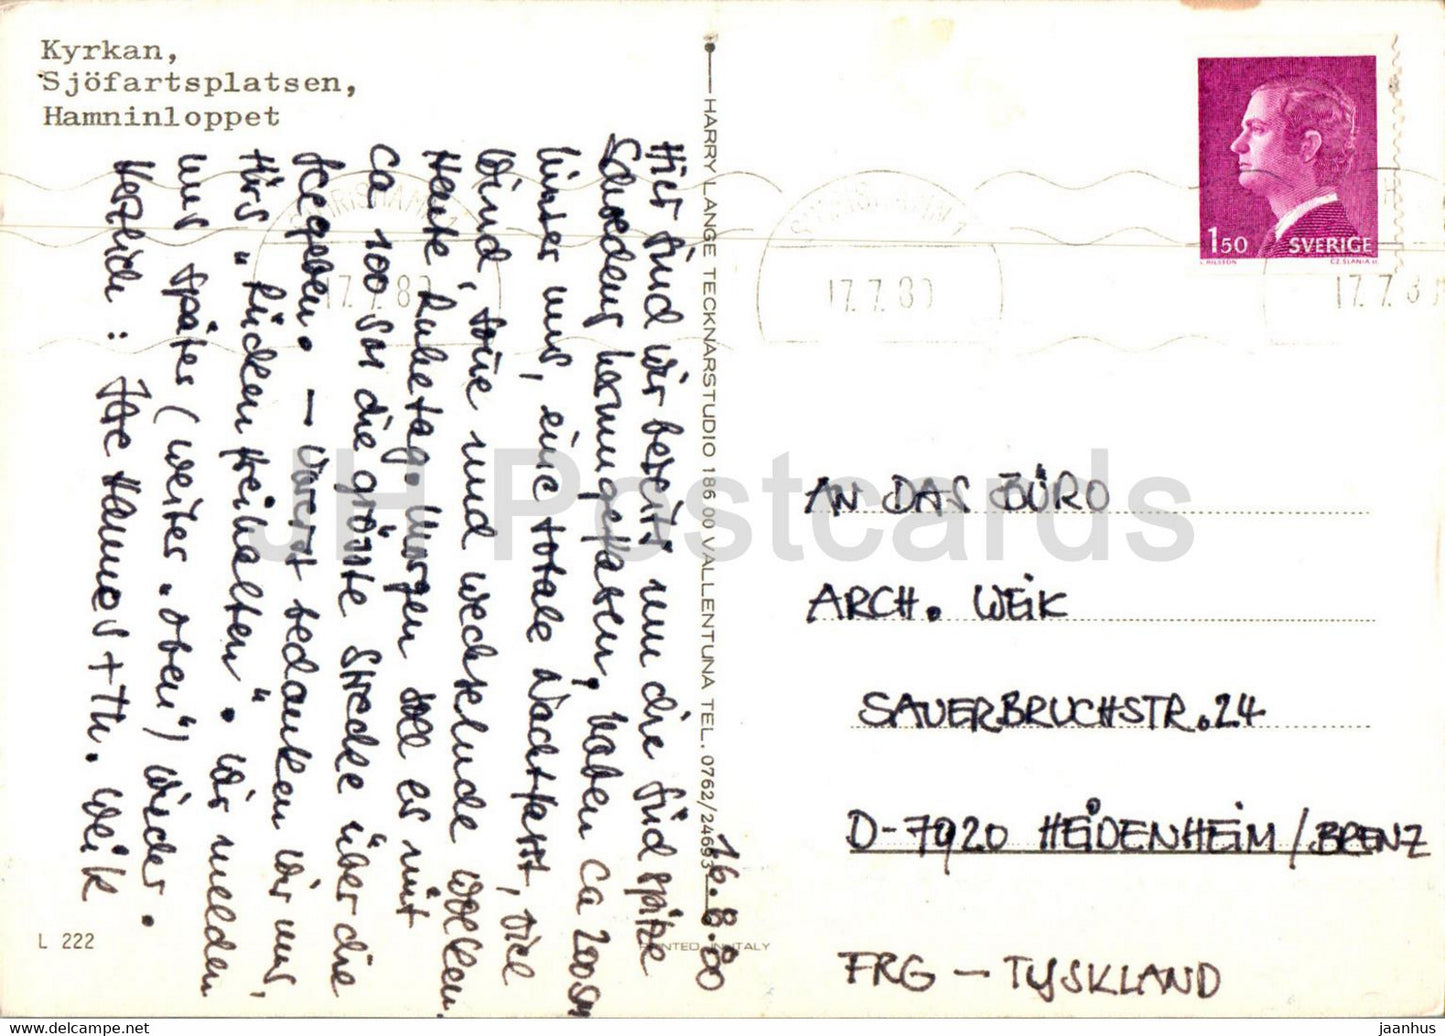 Kyrkan,
Sjöfartsplatsen,
Hamninloppet
HARRY LANGE TECKNARSTUDIO 186 00 VALLENTUNA TEL. 0762/24693
16.8.80
Hier sind wir bereits um die Südspitze
Schwedens herumgefahren, haben ca 200sm
hinter uns, eine totale Nachtfahrt, viel
Wind, Sonne und wechselnde Wellen.
Heute Ruhetag. Morgen soll es mit
ca 100 sm die größte Strecke über die
See geben. — Vorerst bedanken wir uns,
fürs „Rücken freihalten". Wir melden
uns später (weiter „oben") wieder.
Herzlich: Ihre Hannos + Th. Weik
L 222
PRINTED IN ITALY
CHRISTIANHAMN 1
17.7.80
17.7.80
17.7.80
1.50 SVERIGE
L. NILSSON CZ. SLANIA SC.
AN DAS BÜRO
ARCH. WEIK
SAUERBRUCHSTR. 24
D-7920 HEIDENHEIM/BRENZ
FRG — TYSKLAND
JH Postcards
jaanhus